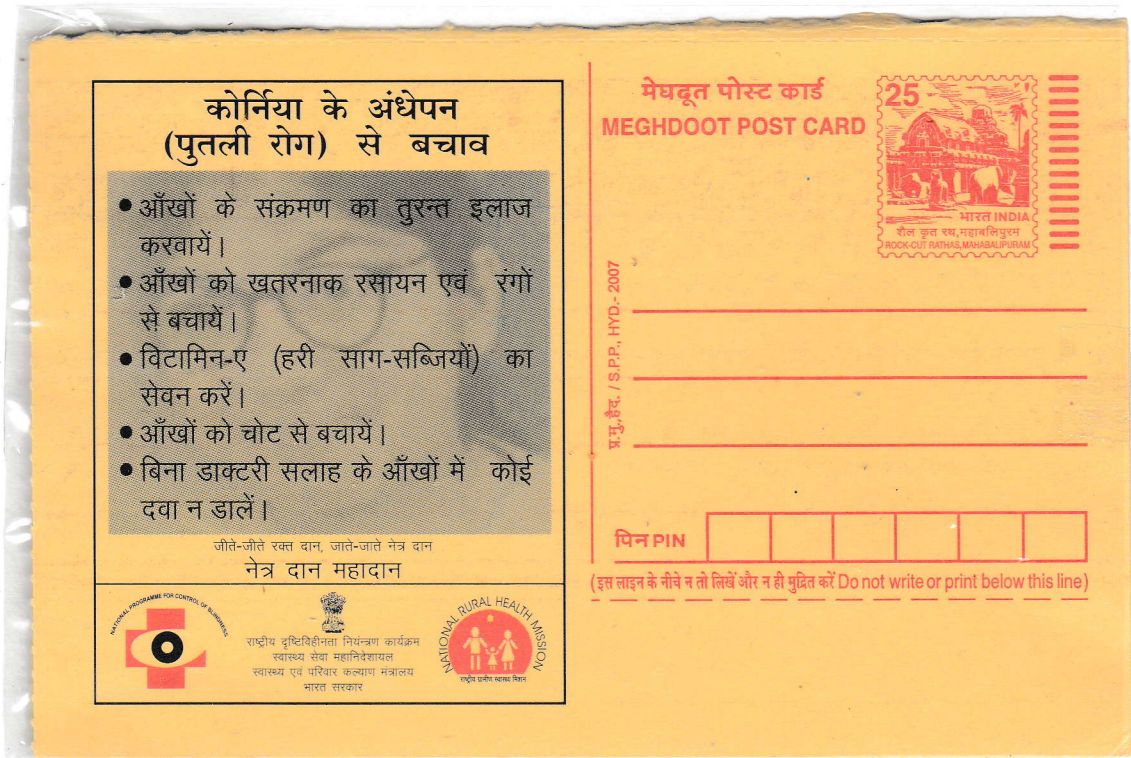 कोर्निया के अंधेपन
(पुतली रोग) से बचाव
• आँखों के संक्रमण का तुरन्त इलाज
करवायें।
• आँखों को खतरनाक रसायन एवं रंगों
से बचायें।
• विटामिन-ए (हरी साग-सब्जियों) का
सेवन करें।
• आँखों को चोट से बचायें।
• बिना डाक्टरी सलाह के आँखों में कोई
दवा न डालें।
जीते-जीते रक्त दान, जाते-जाते नेत्र दान
नेत्र दान महादान
NATIONAL PROGRAMME FOR CONTROL OF BLINDNESS
राष्ट्रीय दृष्टिविहीनता नियंन्त्रण कार्यक्रम
स्वास्थ्य सेवा महानिदेशायल
स्वास्थ्य एवं परिवार कल्याण मंत्रालय
भारत सरकार
NATIONAL RURAL HEALTH MISSION
राष्ट्रीय ग्रामीण स्वास्थ्य मिशन
मेघदूत पोस्ट कार्ड
MEGHDOOT POST CARD
25
भारत INDIA
शैल कृत रथ, महाबलिपुरम
ROCK-CUT RATHAS, MAHABALIPURAM
प्र.मु.,हैद. / S.P.P., HYD.- 2007
पिन PIN
(इस लाइन के नीचे न तो लिखें और न ही मुद्रित करें Do not write or print below this line)